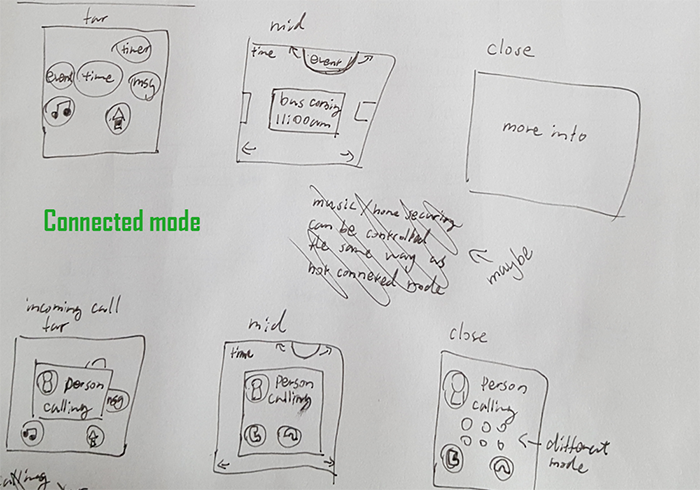 far
timer
event
time
msg
mid
time
event
bus coming
11:00am
close
more info
Connected mode
music/home securing
can be controlled
the same way as
not connected mode
maybe
incoming call
far
person
calling
msg
mid
time
person
calling
close
person
calling
different
mode